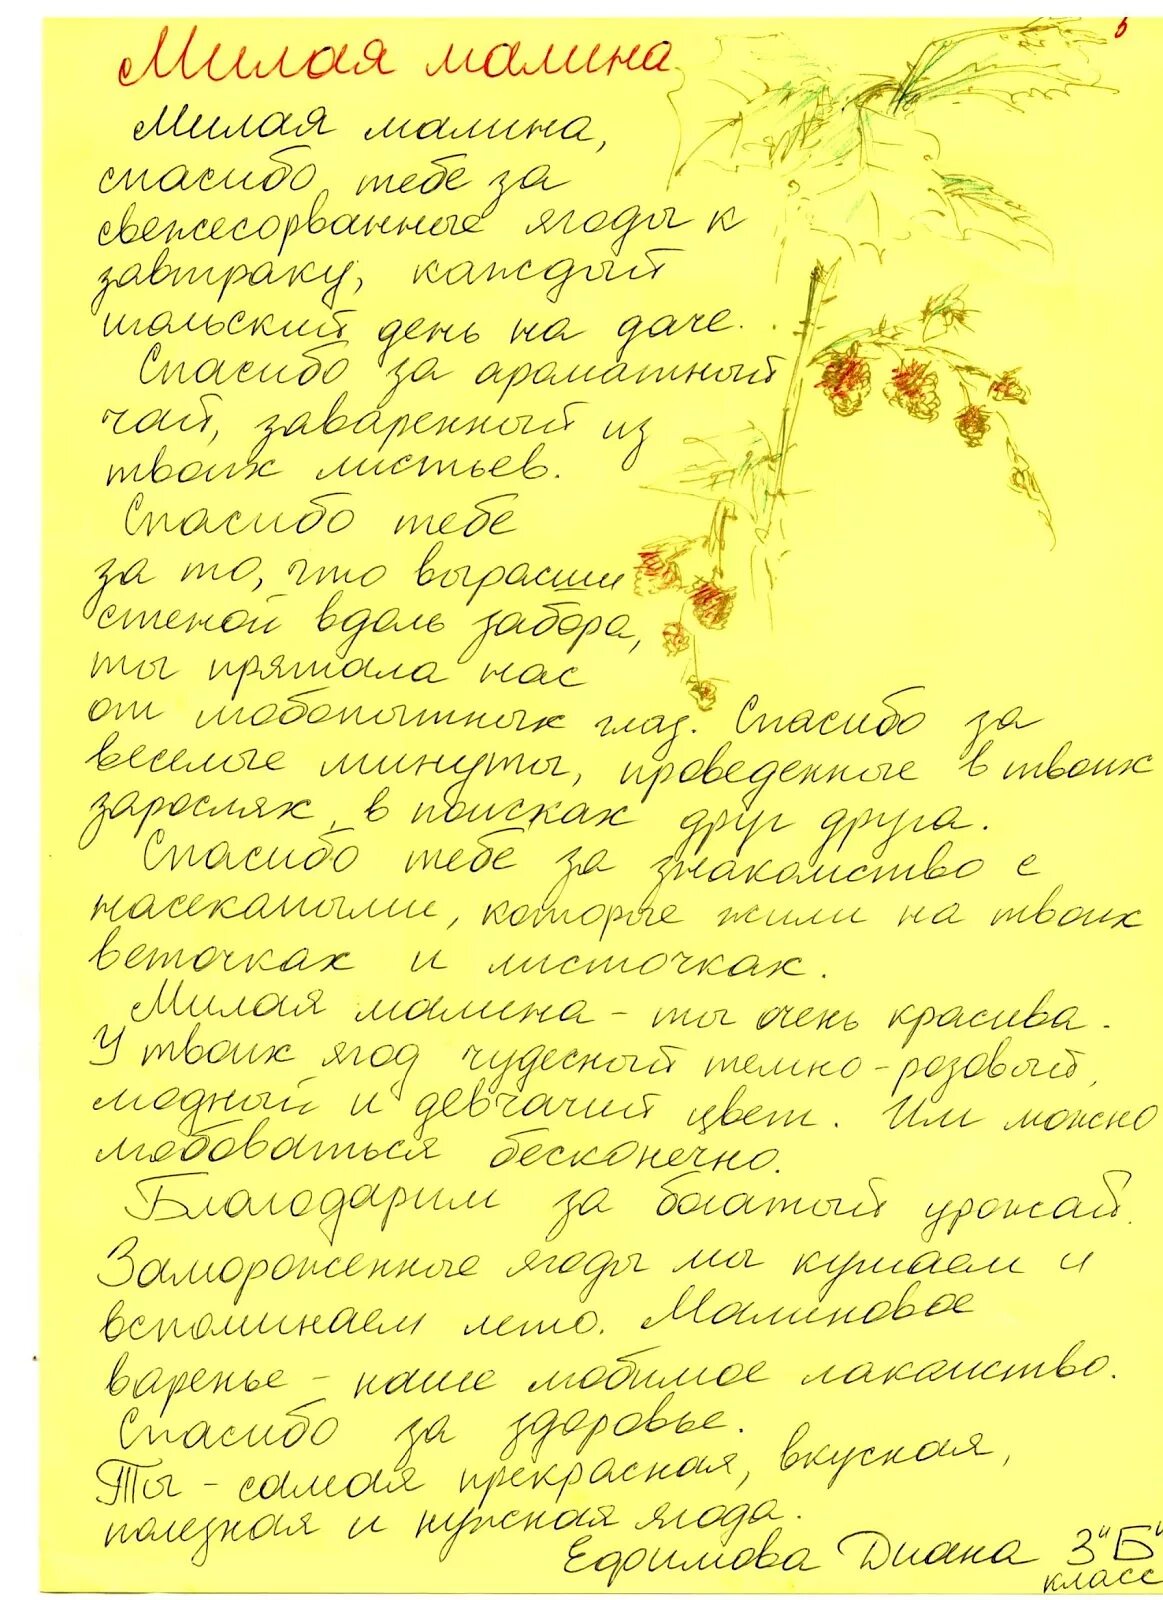 Милая малина
Милая малина,
спасибо тебе за
свежесорванные ягоды к
завтраку, каждый
июльский день на даче.
Спасибо за ароматный
чай, заваренный из
твоих листьев.
Спасибо тебе
за то, что выросши
стеной вдоль забора,
ты прятала нас
от любопытных глаз. Спасибо за
веселые минуты, проведенные в твоих
зарослях, в поисках друг друга.
Спасибо тебе за знакомство с
насекомыми, которые жили на твоих
веточках и листочках.
Милая малина - ты очень красива.
У твоих ягод чудесный темно-розовый,
модный и девчачий цвет. Им можно
любоваться бесконечно.
Благодарим за богатый урожай.
Замороженные ягоды мы кушаем и
вспоминаем лето. Малиновое
варенье - наше любимое лакомство.
Спасибо за здоровье.
Ты - самая прекрасная, вкусная,
полезная и нужная ягода.
Ефимова Диана 3"Б"
класс